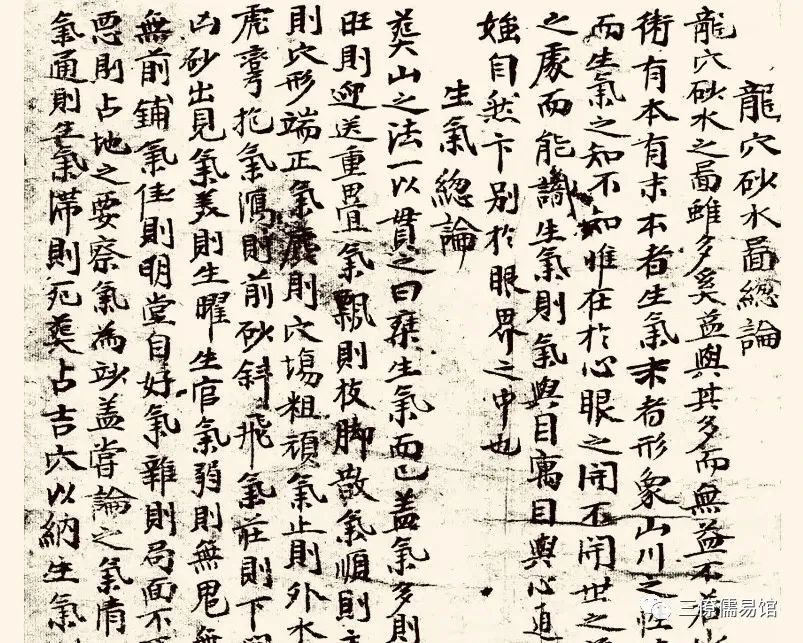 龍穴砂水啚總論
龍穴砂水之啚雖多奚益與其多而無益不若
術有本有末本者生氣末者形象山川之性
而生氣之知不知惟在於心眼之開不開世之
之處而能識生氣則氣與目寓目與心
媸自然卞別於眼界之中也
生氣總論
葬山之法一以貫之曰乗生氣而已盖氣多則
旺則迎送重疊氣飄則枝脚散氣順則
則穴形端正氣 則穴塲粗頑氣止則外水
虎彎抱氣 則前砂斜飛氣莊則下
凶砂出見氣美則生曜生官氣弱則無鬼無
無前鋪氣佳則明堂自好氣雜則局面不
悪則占地之要察氣為 盖嘗論之氣有
氣通則生氣滯則死葬占吉穴以納生氣
三僚儒易馆